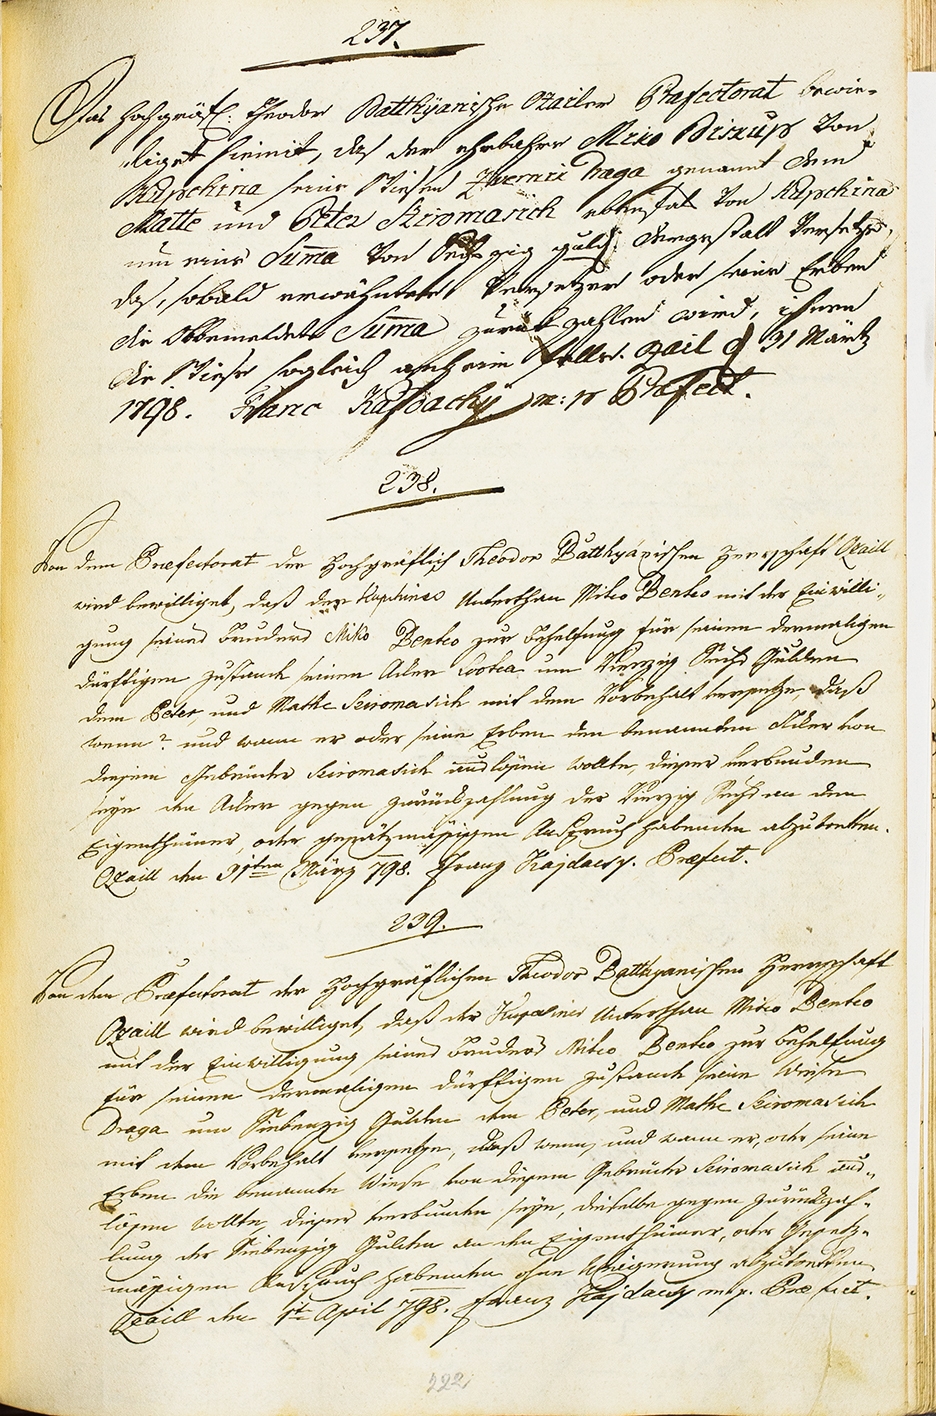 237.
Das Hochgräfl. Theodor Batthÿanische Ozailer Præfectorat bewie-
liget hiemit, das der ehrbahre Mixo Biszup von
Kupchina seine Wiesen Zvernik Draga genannt dem
Matte und Peter Skiromasich ebenfals von Kupchina
um eine Suma von Sechzig guld: dergestalt Versetze,
das, sobald erwähnter Versetzer oder seine Erben
die Obbemeldete Suma zurük zahlen wird, ihnen
die Wiese sogleich anheim falle. Ozail d 31 März
1798. Franc Kajdachÿ m:p Præfect.
238.
Von dem Præfectorat der Hochgräflich Theodor Batthyánischen Herrschaft Ozaill
wird bewilliget, daß der Kupchinec Unterthan Miko Benko mit der Einwilli-
gung seines Bruders Miko Benko zur Behelfung für seinen dermaligen
dürftigen Zustand seinen Aker Looka um Vierzig Sechs Gulden
dem Peter, und Mathe Sciromasich mit dem Vorbehalt versetze, daß
wenn, und wann er oder seine Erben den benannten Aker von
diesem Gebrüder Sciromasich auslösen wollte, dieser verbunden
seye den Aker gegen Zurückzahlung der Vierzig Sechs an den
Eigenthümer, oder gesätzmässigen Anspruch habenden abzutretten.
Ozaill den 31ten März 798. Franz Kajdacsy. Præfect.
239.
Von dem Præfectorat der Hochgräflichen Theodor Batthyanischen Herrschaft
Ozaill wird bewilliget, daß der Kupchinec Unterthan Miko Benko
mit der Einwilligung seines Bruders Miko Benko zur Behelfung
für seinen dermaligen dürftigen Zustand seine Wiese
Draga um Siebenzig Gulden dem Peter, und Mathe Sciromasich
mit dem Vorbehalt versetze, daß wenn, und wann er, oder seine
Erben die benannte Wiese von diesem Gebrüder Sciromasich aus-
lösen wollte, dieser verbunden seye, dieselbe gegen Zurückzah-
lung der Siebenzig Gulden an den Eigenthümer, oder Gesetz-
mäßigen Anspruch habenden ohne Weigerung abzutretten.
Ozaill den 1te April 798. Franz Kajdacsy mp. Præfect.
222